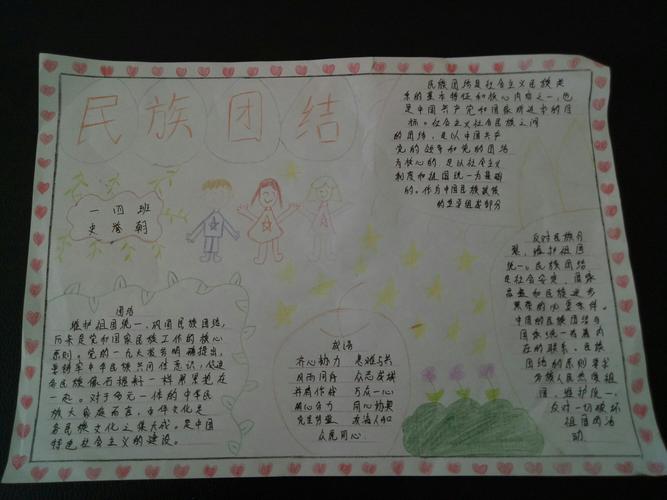 民族团结
一四班
民族团结是社会主义民族关
系的基本特征和核心内容之一,也
是中国共产党和国家
标。社会主义社会民族之间
的团结,是以中国共产
党的领导和党的团结
为核心的,是以社会主义
制度和祖国统一为基础
的。作为中国民族政策
的 组成部分
团结
维护祖国统一,巩固民族团结,
历来是党和国家民族工作的核心
原则。党的一九大报告明确提出,
中华民族共同体意识,促进
各民族像石榴籽一样紧紧抱在
一起。对于多元一体的中华民
族大家庭而言,
各民族文化之集大成。是中国
特色社会主义的建设。
成语
齐心协力 患难与共
风雨同舟 众志成城
万众一心
同心协力
众人同心
反对民族分
裂,维护祖国
统一。民族团结
是社会安定、国家
昌盛和民族进步
繁荣的必要条件。
中国的民族团结与
国家统一有着内
在的联系。民族
团结的原则要求
各族人民热爱祖
国,维护统一,
反对一切破坏
祖国的活
动